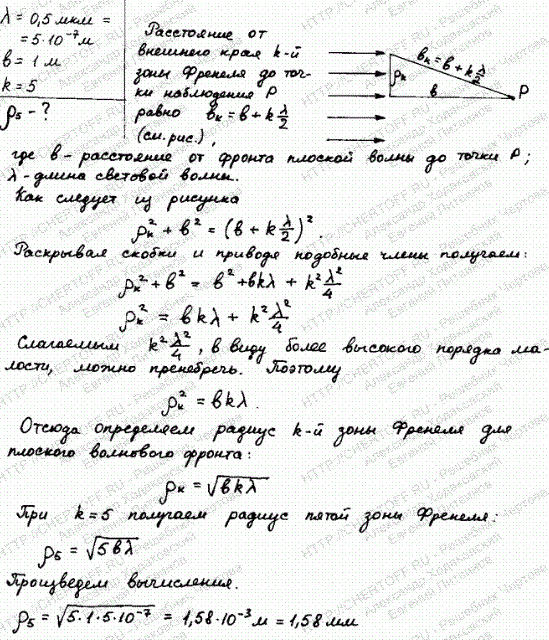 λ = 0,5 мкм =
= 5·10⁻⁷ м
в = 1 м
k = 5
ρ₅ - ?
Расстояние от
внешнего края k-й
зоны Френеля до точ-
ки наблюдение P
равно вₖ = в + k λ/2
(см. рис.),
вₖ = в + k λ/2
ρₖ
в
P
где в - расстояние от фронта плоской волны до точки P;
λ - длина световой волны.
Как следует из рисунка
ρₖ² + в² = (в + k λ/2)².
Раскрывая скобки и приводя подобные члены получаем:
ρₖ² + в² = в² + вkλ + k² λ²/4
ρₖ² = вkλ + k² λ²/4
Слагаемым k² λ²/4, в виду более высокого порядка ма-
лости, можно пренебречь. Поэтому
ρₖ² = вkλ.
Отсюда определяем радиус k-й зоны Френеля для
плоского волнового фронта:
ρₖ = √вkλ
При k = 5 получаем радиус пятой зоны Френеля:
ρ₅ = √5вλ
Произведем вычисления.
ρ₅ = √5·1·5·10⁻⁷ = 1,58·10⁻³ м = 1,58 мм
HTTP://CHERTOFF.RU - Решебник Чертова
Евгений Литвинов